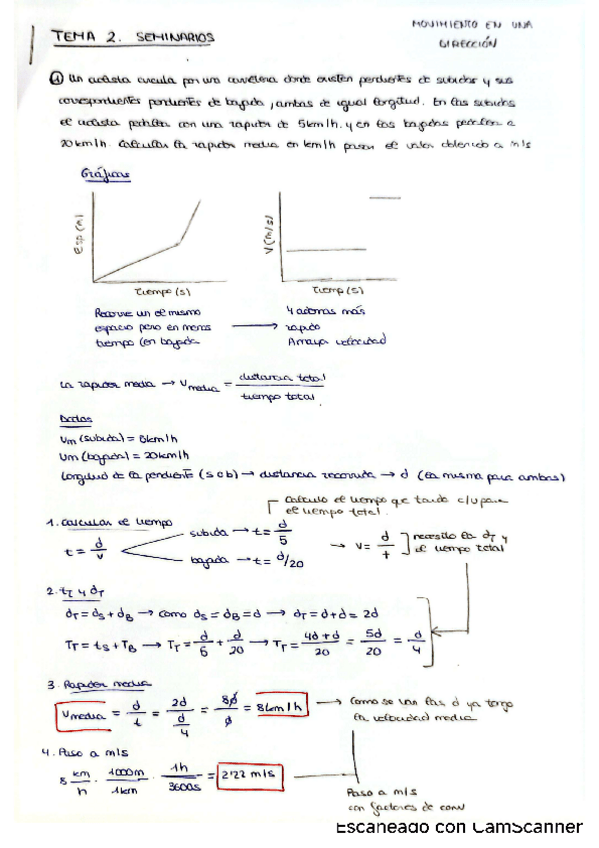 TEMA 2. SEMINARIOS
MOVIMIENTO EN UNA
DIRECCIÓN
① Un ciclista circula por una carretera donde existen pendientes de subidas y sus
correspondientes pendientes de bajada, ambas de igual longitud. En las subidas
el ciclista pedalea con una rapidez de 5km/h. y en las bajadas pedalea a
20km/h. Calcular la rapidez media en km/h pasar el valor obtenido a m/s
Gráficas
Esp (m)
Tiempo (s)
V(m/s)
Tiemp (s)
Recorre un el mismo
espacio pero en menos
tiempo (en bajada
y además más
rápido
A mayor velocidad
La rapidez media → Vmedia = distancia total / tiempo total
Datos
Vm (subida) = 5km/h
Vm (bajada) = 20km/h
Longitud de la pendiente (s c b) → distancia recorrida → d (la misma para ambas)
Calculo el tiempo que tarda c/u para
el tiempo total.
1. Calcular el tiempo
t = d/v
subida → t = d/5
bajada → t = d/20
→ V = d/t
necesito la dT y
el tiempo total
2. tT y dT
dT = dS + dB → como dS = dB = d → dT = d+d = 2d
TT = tS + TB → TT = d/5 + d/20 → TT = 4d+d/20 = 5d/20 = d/4
3. Rapidez media
Vmedia = d/t = 2d/d/4 = 8d/d = 8km/h
→ Como se van las d ya tengo
la velocidad media
4. Paso a m/s
8 km/h · 1000m/1km · 1h/3600s = 2'22 m/s
Paso a m/s
con factores de conv
Escaneado con CamScanner